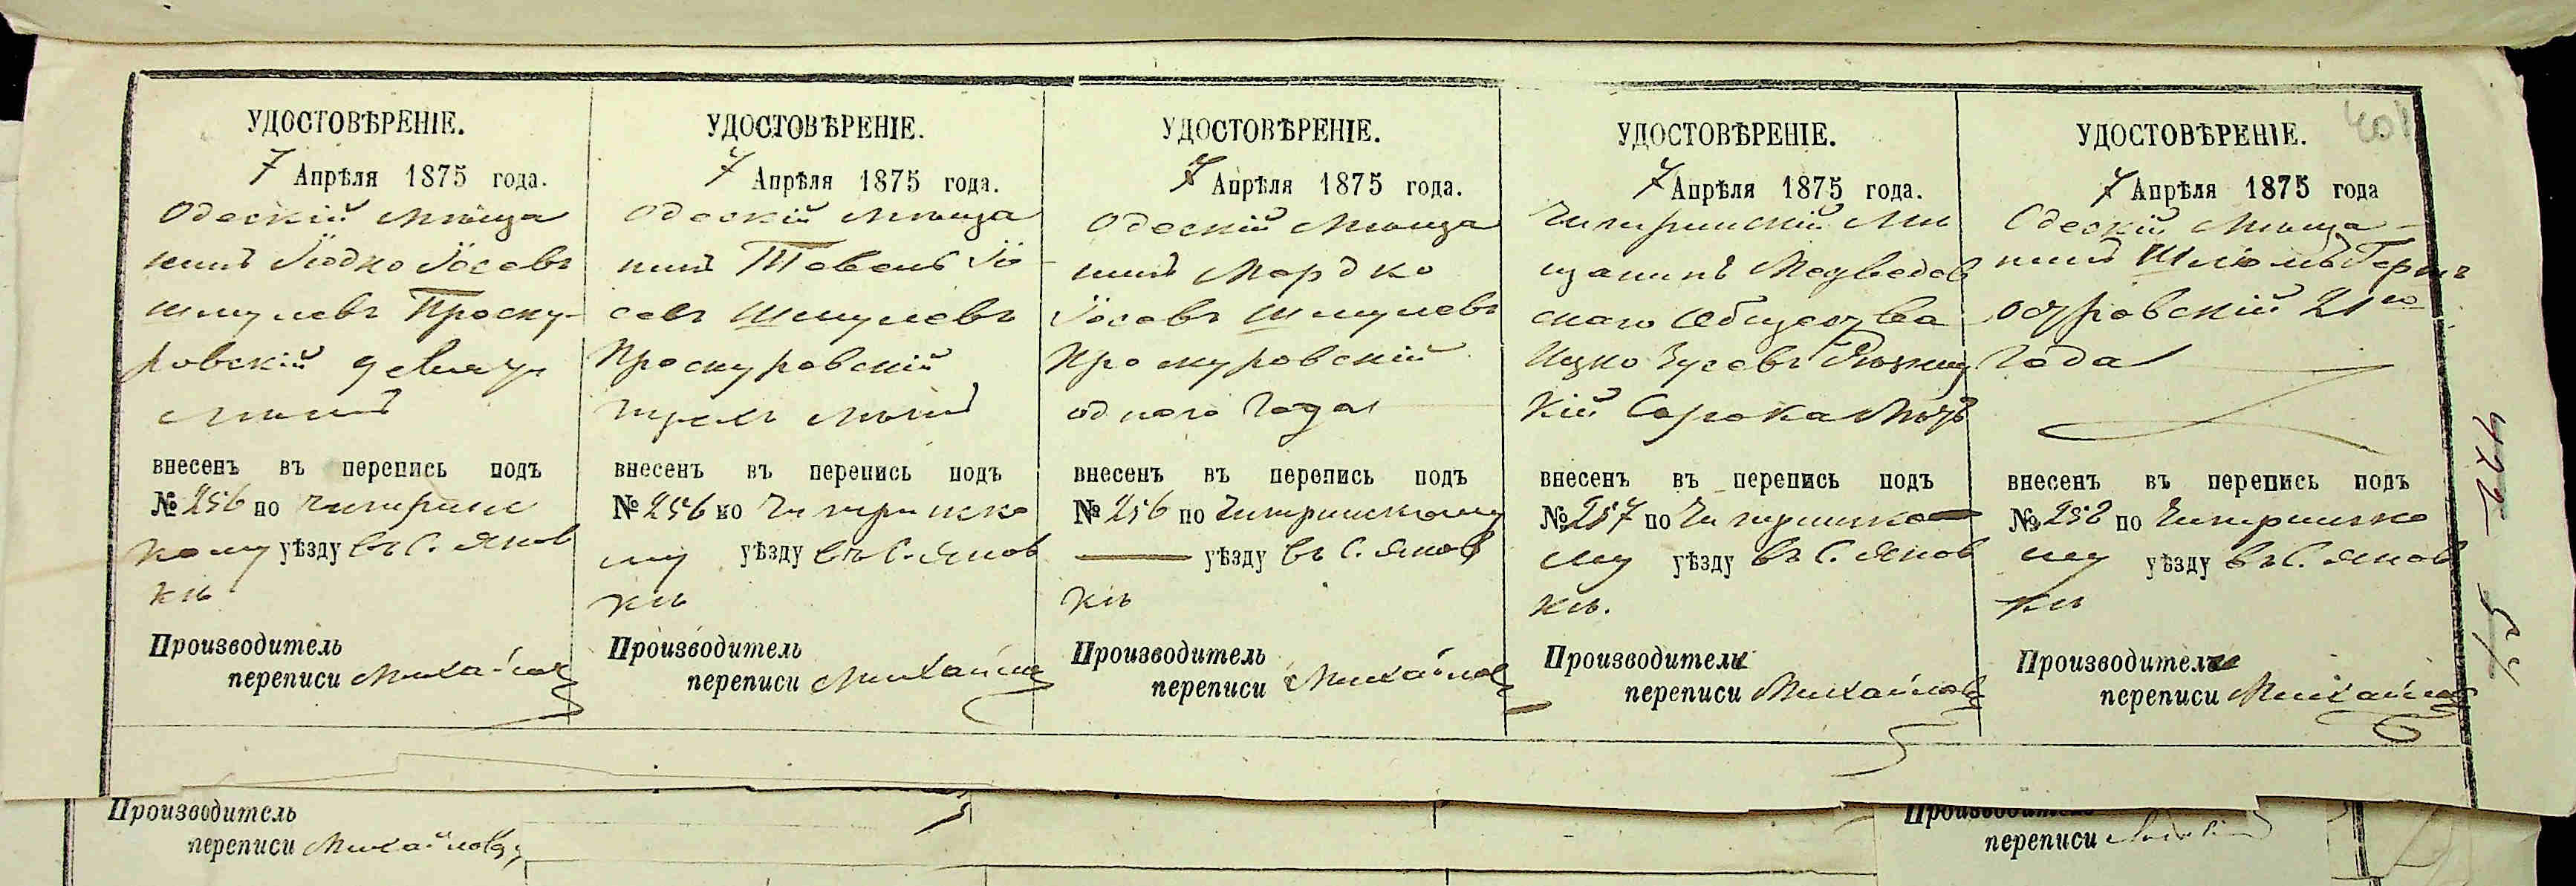 УДОСТОВѢРЕНІЕ.
7 Апрѣля 1875 года.
Одескій Мѣща
нинъ Іодко Іосевъ
Шмулевъ Проску-
ровскій девяти
лѣтъ
внесенъ въ перепись подъ
№ 256 по Чигринс
кому уѣзду въ С. Янов
кѣ
Производитель
переписи Михайловъ
УДОСТОВѢРЕНІЕ.
7 Апрѣля 1875 года.
Одескій Мѣща
нинъ Тевель Іо
севъ Шмулевъ
Проскуровскій
трехъ лѣтъ
внесенъ въ перепись подъ
№ 256 по Чигринско
му уѣзду въ С. Янов
кѣ
Производитель
переписи Михайловъ
УДОСТОВѢРЕНІЕ.
7 Апрѣля 1875 года.
Одескій Мѣща
нинъ Мордко
Іосевъ Шмулевъ
Проскуровскій
одного года
внесенъ въ перепись подъ
№ 256 по Чигринскому
уѣзду въ С. Янов
кѣ
Производитель
переписи Михайловъ
УДОСТОВѢРЕНІЕ.
7 Апрѣля 1875 года.
Чигринскій Мѣ
щанинъ Медведов
скаго Общества
Ицко Зусевъ
кій Сорока лѣтъ
внесенъ въ перепись подъ
№ 257 по Чигринско
му уѣзду въ С. Янов
кѣ.
Производитель
переписи Михайловъ
УДОСТОВѢРЕНІЕ.
7 Апрѣля 1875 года
Одескій Мѣща-
нинъ Шліомъ
островскій 21го
Года
внесенъ въ перепись подъ
№ 258 по Чигринско
му уѣзду въ С. Янов
кѣ
Производитель
переписи Михайловъ
Производитель
переписи Михайловъ
Производитель
переписи